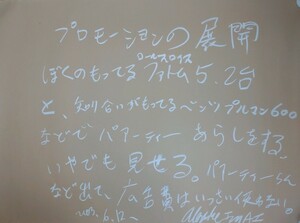 プロモーションの展開
ロールスロイス
ぼくのもってるファトム5.2台
と、知り合いがもってるベンツプルマン600
などで パアーティー あらしをする
いやでも見せる。パアーティーらん
など出て、広告費はいっさい使わない。
6.12